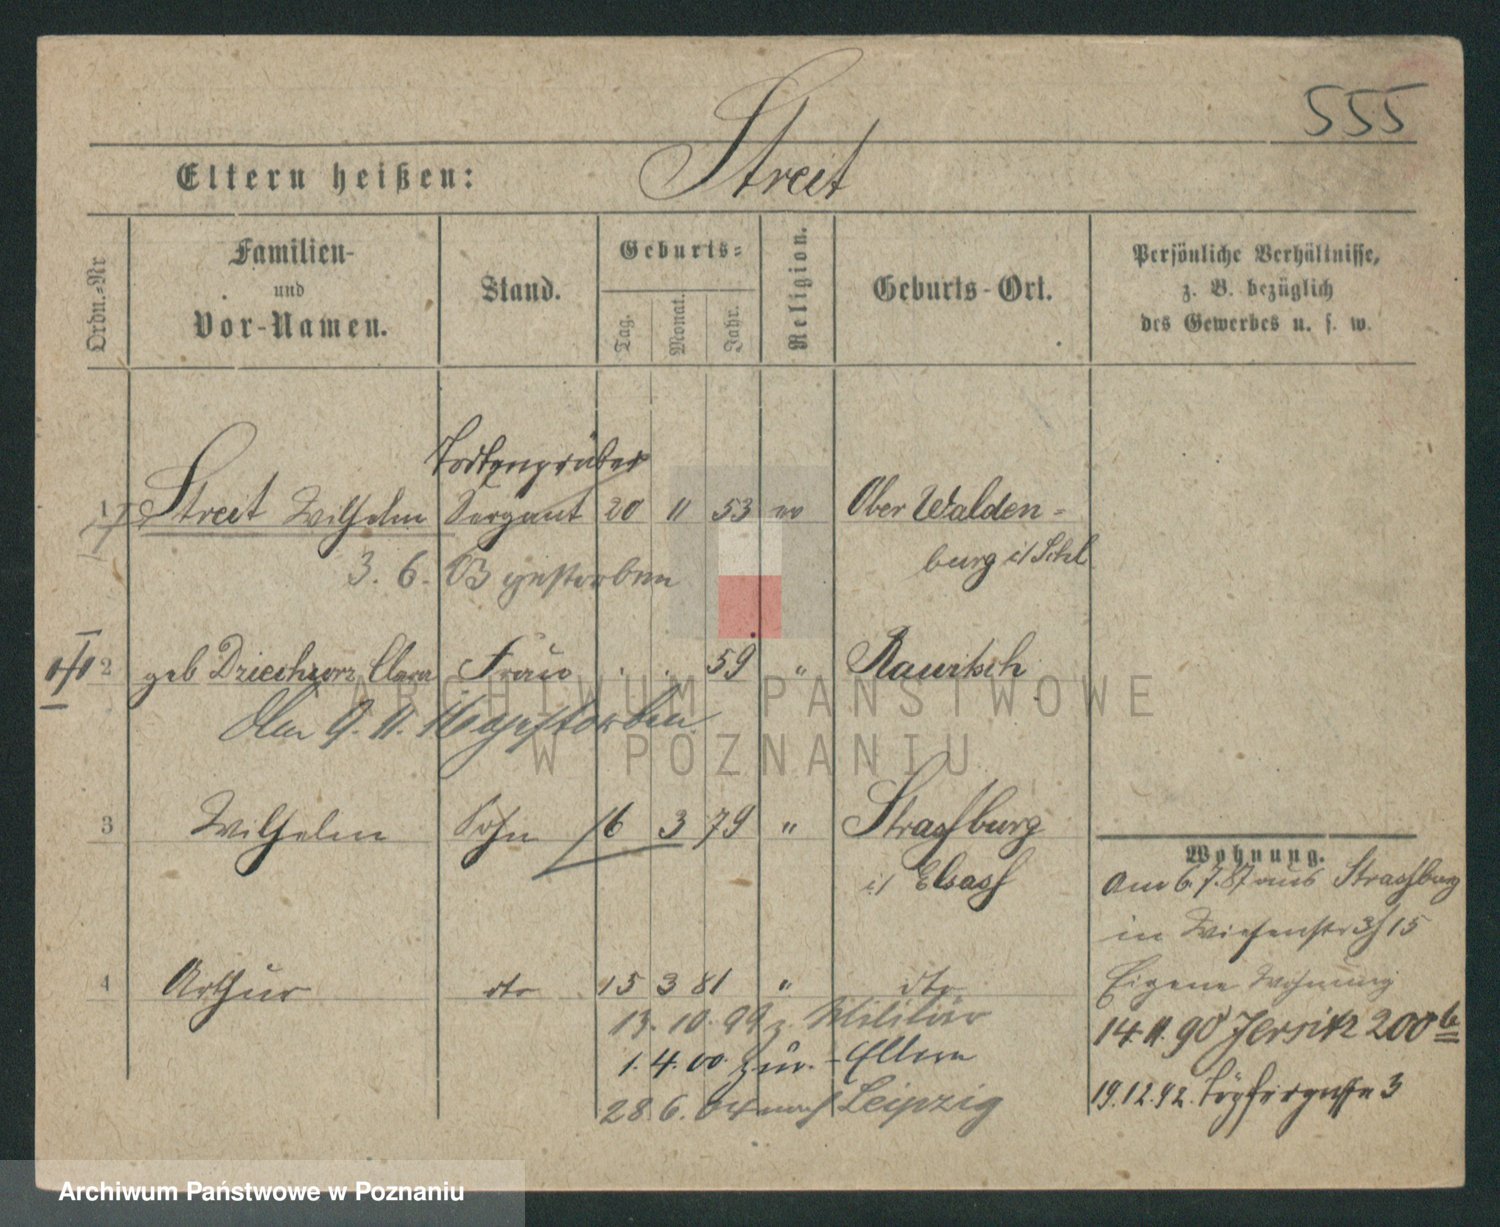 555
Eltern heißen: Streit
Ordn.-Nr
Familien-
und
Vor-Namen.
Stand.
Geburts-
Tag.
Monat.
Jahr.
Religion.
Geburts-Ort.
Persönliche Verhältnisse,
z. B. bezüglich
des Gewerbes u. s. w.
Todtengräber
1 Streit Wilhelm Sergant 20 11 53 ev Ober Walden-
burg i/Schl
3. 6. 03 gestorben
2 geb Dziechciarz Clara Frau . . 59 " Rawitsch
Am 9. 11. gestorben
3 Wilhelm Sohn 16 3 79 " Straßburg
i/ Elsaß
4 Arthur dto 15 3 81 " dto
13. 10. 99 z. Militär
1. 4. 00 zur. - Eltern
28. 6. 04 nach Leipzig
Wohnung.
Am 6.7.87 aus Straßburg
in Wiesenstr 15
Eigene Wohnung
14. 11. 90 Jersitz 200 b
19.12.92. Töpfergasse 3
ARCHIWUM PAŃSTWOWE
W POZNANIU
Archiwum Państwowe w Poznaniu